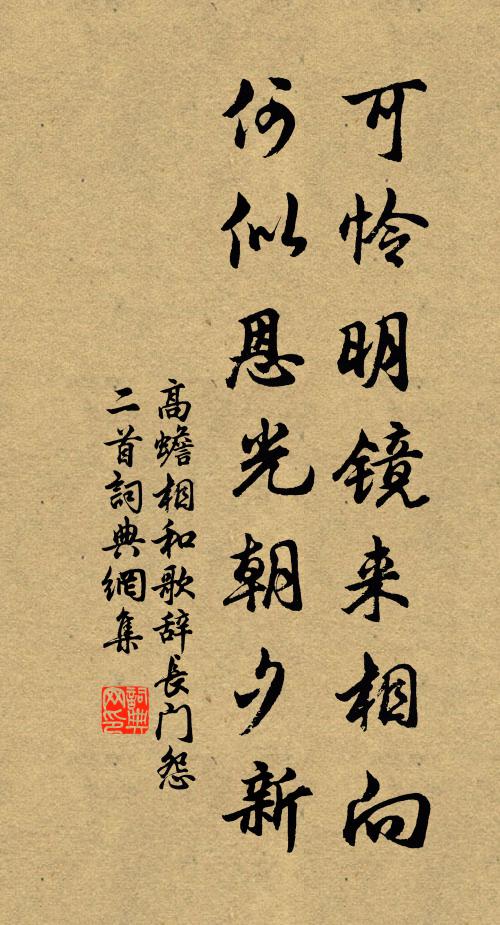 可怜明镜来相向
何似恩光朝夕新
高蟾相和歌辞长门怨
二首詞典網集
詞典
网印